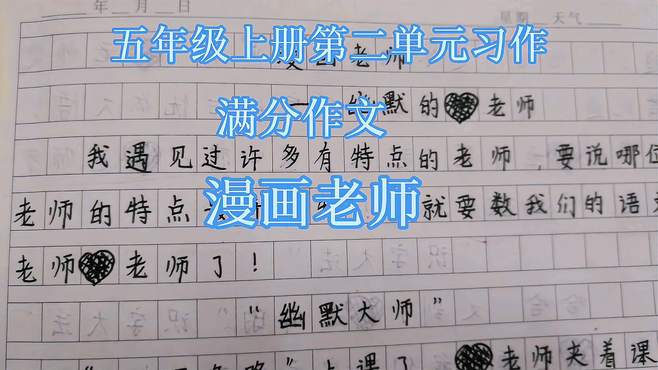 年 月 日 星期 天气
五年级上册第二单元习作
漫画老师
——幽默的老师
满分作文
我遇见过许多有特点的老师，要说哪位
漫画老师
老师的特点 就要数我们的语
老师 老师了！
"幽默大师"
上课了 老师夹着课